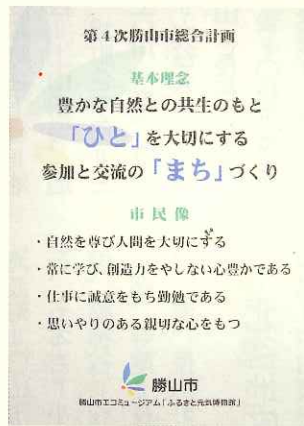 第4次勝山市総合計画
基本理念
豊かな自然との共生のもと
「ひと」を大切にする
参加と交流の「まち」づくり
市民像
・自然を尊び人間を大切にする
・常に学び、創造力をやしない心豊かである
・仕事に誠意をもち勤勉である
・思いやりのある親切な心をもつ
勝山市
勝山市エコミュージアム「ふるさと元気博物館」